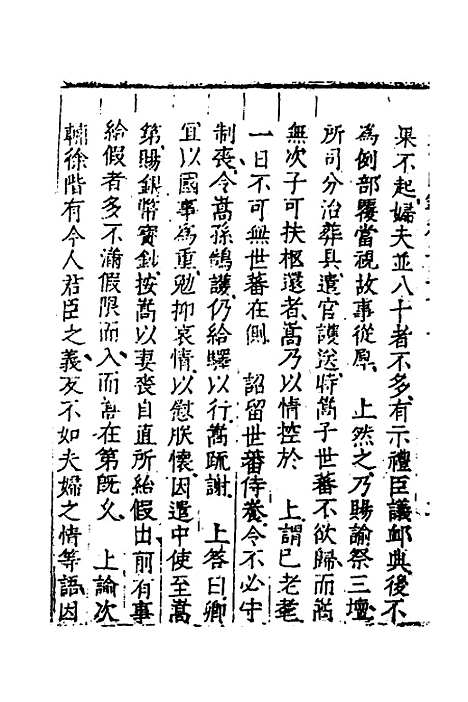 果不起婦夫並八十者不多有示禮臣議卹典後不
為例部覆當視故事從厚　上然之乃賜諭祭三壇
所司分治葬具遣官護送時嵩子世蕃不欲歸而嵩
無次子可扶柩還者嵩乃以情控於　上謂已老耄
一日不可無世蕃在側　詔留世蕃侍養令不必守
制喪令嵩孫鵠護仍給驛以行嵩疏謝　上答曰卿
宜以國事為重勉抑哀情以慰朕懷因遣中使至嵩
第賜銀幣寶鈔按嵩以妻喪自直所給假出前有事
給假者多不滿假限而入而嵩在第既久　上諭次
輔徐階有今人君臣之義反不如夫婦之情等語因